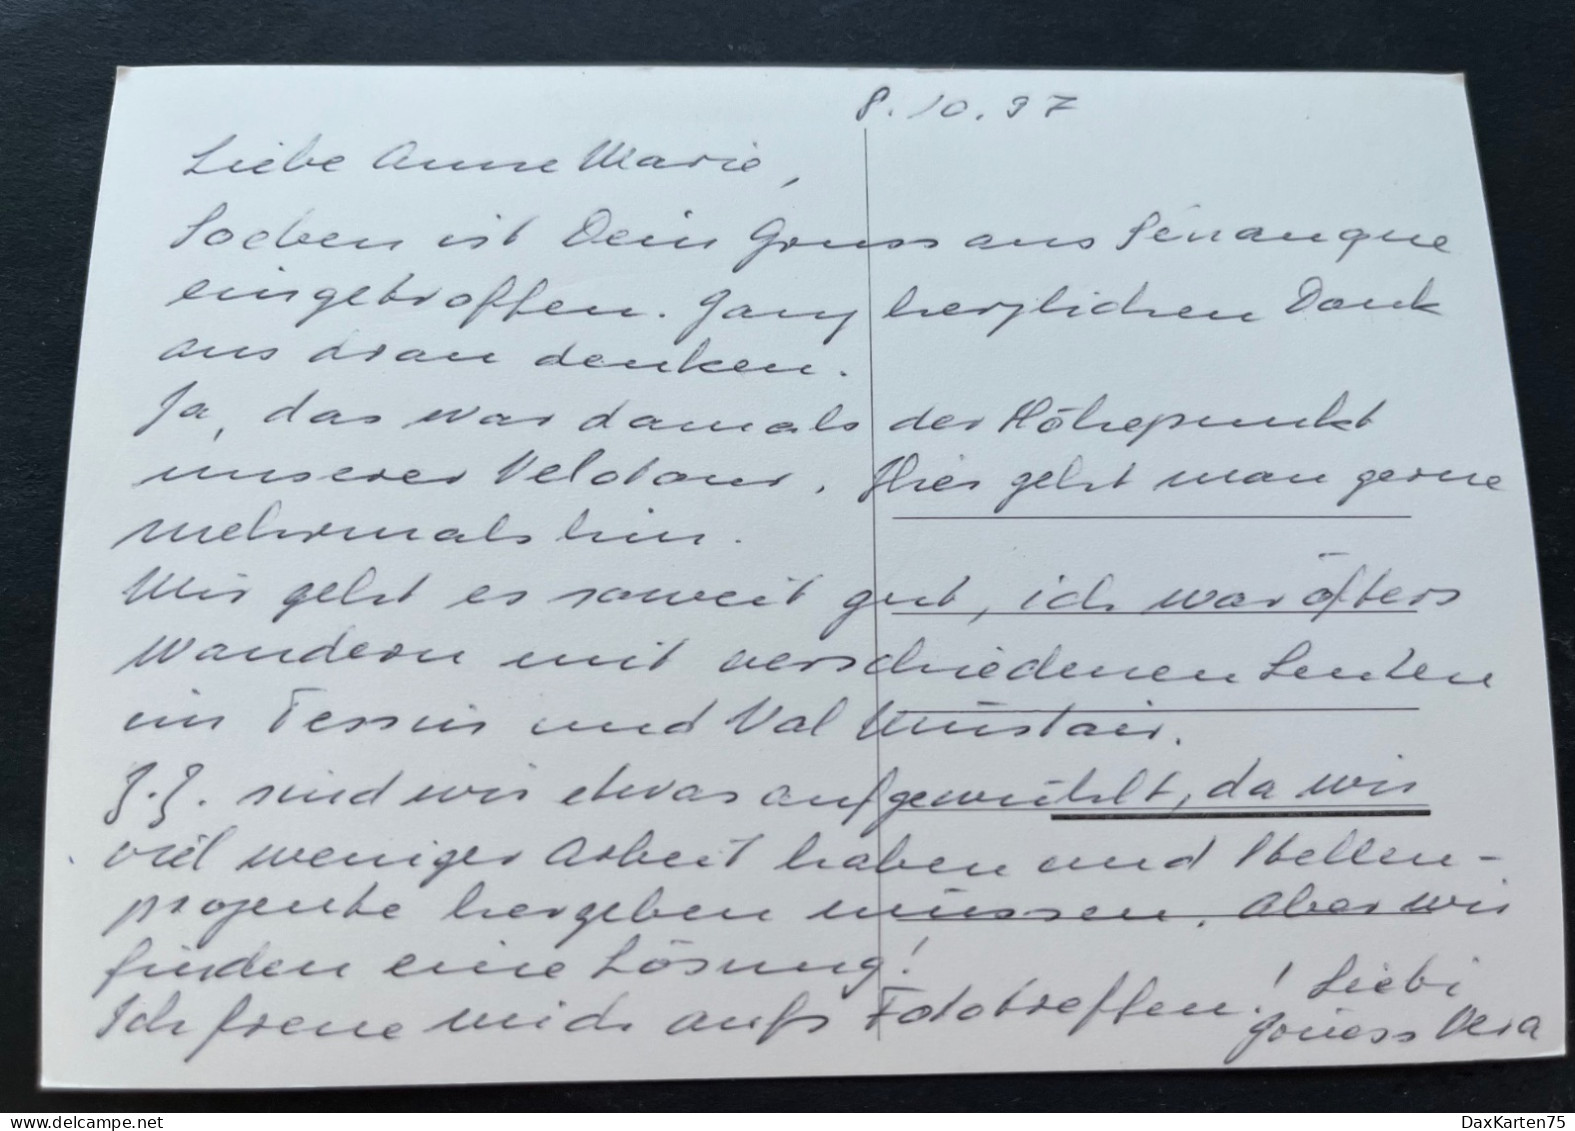 8.10.97
Liebe Anne Marie,
Soeben ist Dein Gruss aus Sénanque
eingetroffen. Ganz herzlichen Dank
ans dran denken.
Ja, das war damals der Höhepunkt
unserer Velotour. Hier geht man gerne
mehrmals hin.
Mir geht es soweit gut, ich war öfters
wandern mit verschiedenen Leuten
im Tessin und Val Müstair.
Z.Z. sind wir etwas aufgewühlt, da wir
viel weniger Arbeit haben und Stellen-
projente hergeben müssen. Aber wir
finden eine Lösung!
Ich freue mich aufs Fototreffen! Liebi
Grüess Vera
DaxKarten75
www.delcampe.net